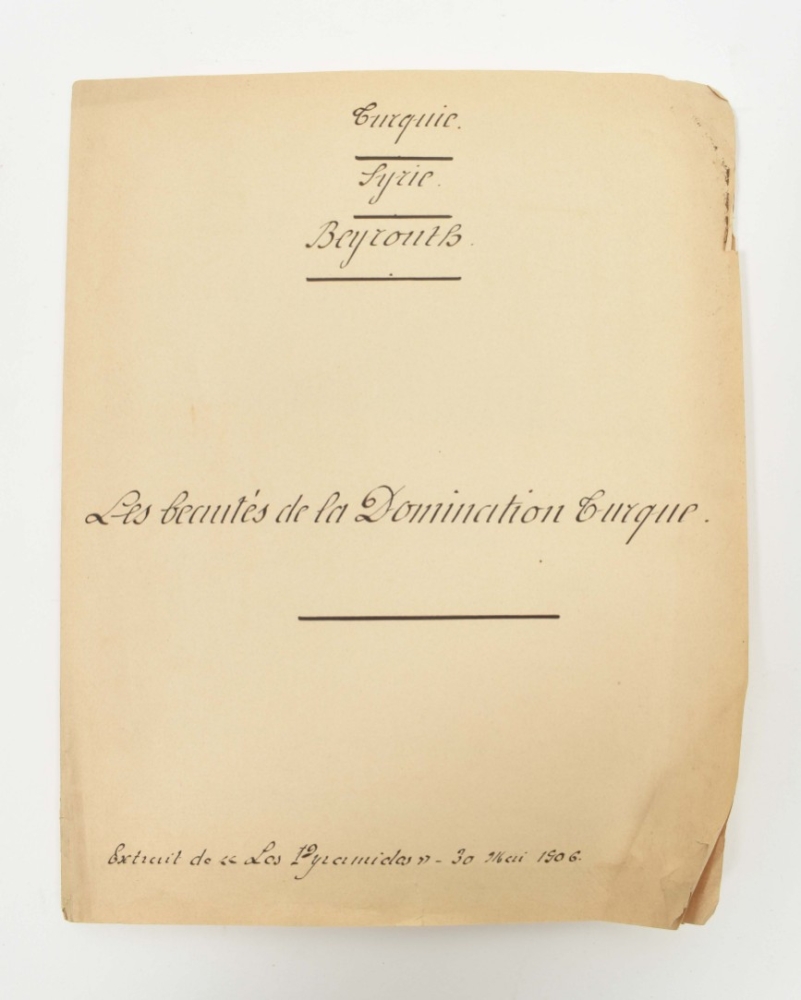 Turquie.
Syrie.
Beyrouth.
Les beautés de la Domination Turque.
Extrait de « Les Pyramides » - 30 Mai 1906.